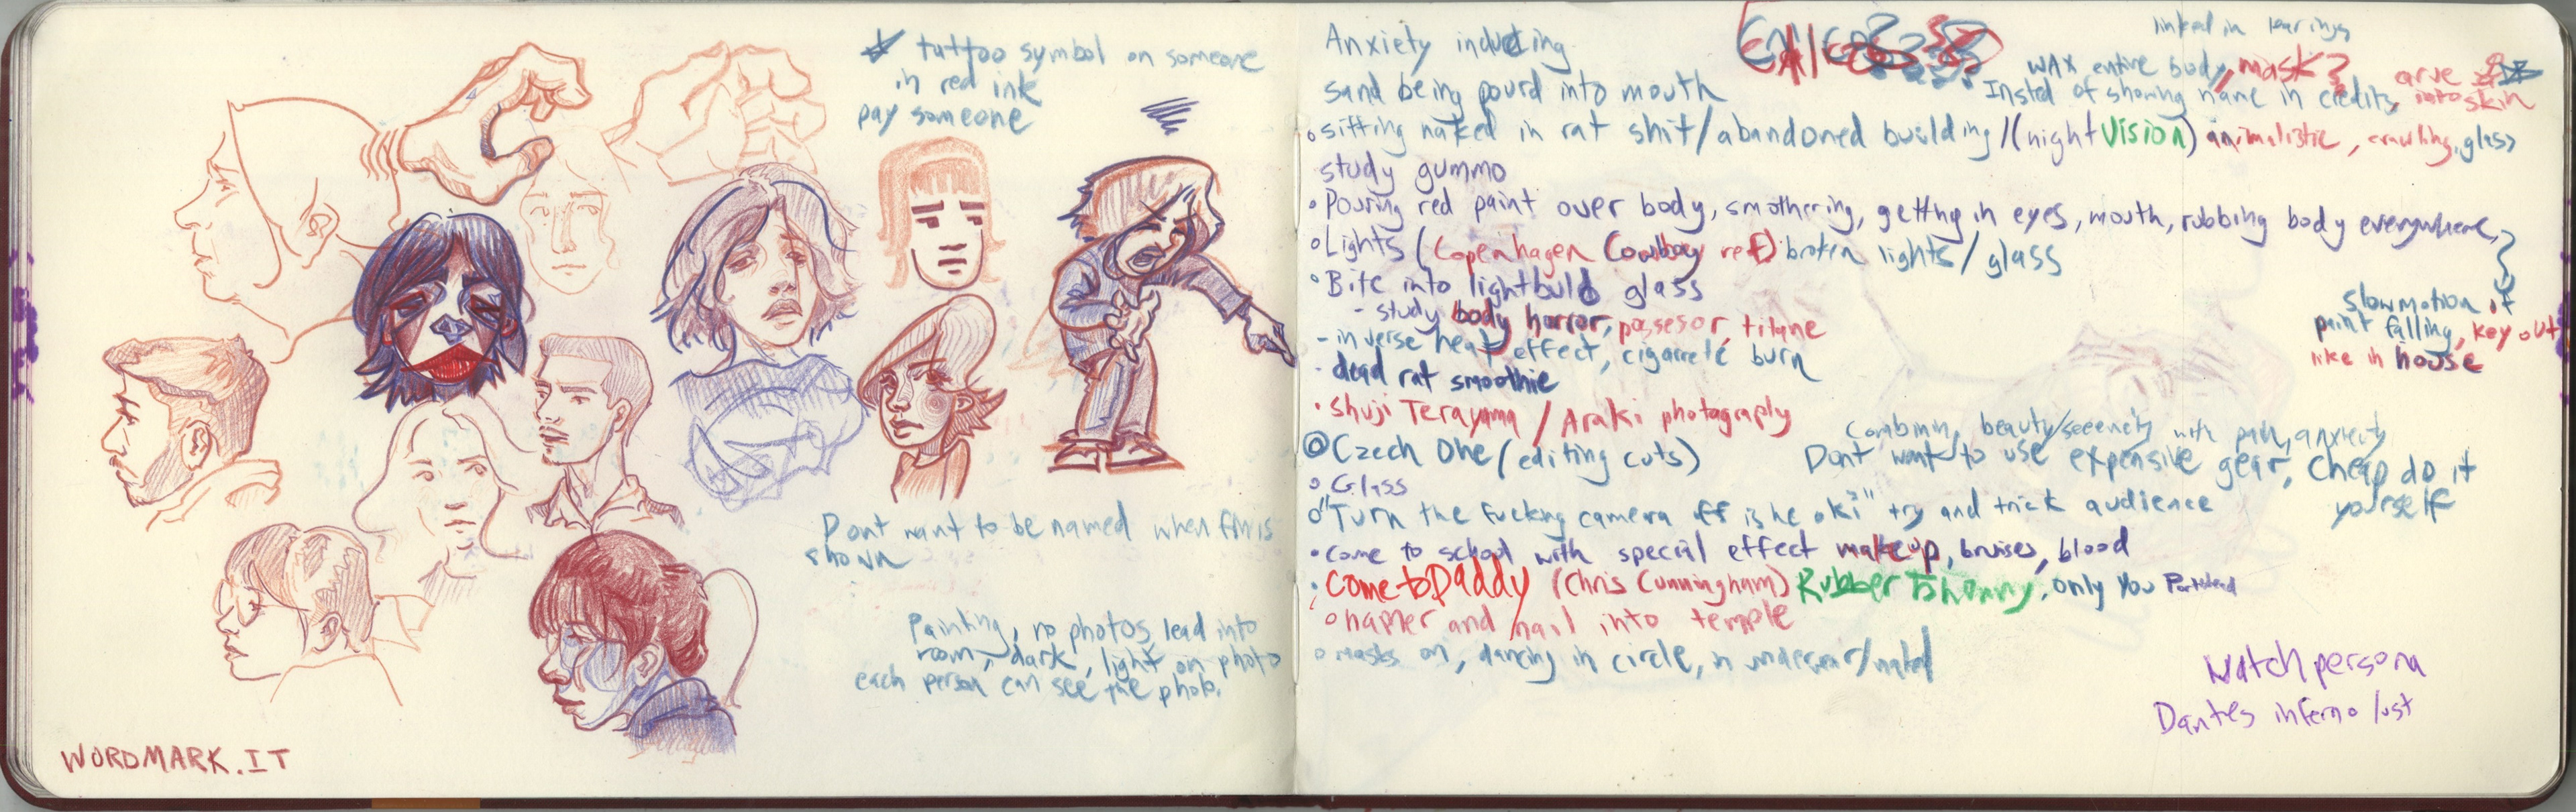 tuttoo symbol on someone
in red ink
pay someone
Dont want to be named when this is
shown
Painting, no photos, lead into
room, dark, light on photo
each person can see the photo.
WORDMARK.IT
Anxiety inducting
linked in
sand being pourd into mouth
WAX entire body, mask?
Insted of showing name in credits, into skin
sitting naked in rat shit/abandoned building/(night Vision) animalistic, crawling, glass
study gummo
Pouring red paint over body, smothering, getting in eyes, mouth, rubbing body everywhere,
Lights (Copenhagen Cowboy red) broken lights/glass
Bite into lightbulb glass
- study body horror, possesor, titane
slowmotion if
paint falling, key out
like in house
- inverse heat effect, cigarrete burn
- dead rat smoothie
Shuji Terayama / Araki photography
Czech One (editing cuts)
Combining beauty/seeenety with pain, anxiety
Dont want to use expensive gear, cheap do it
yourself
Glass
"Turn the fucking camera off is he oki" try and trick audience
come to school with special effect makeup, bruises, blood
Come to Daddy (Chris Cunningham) Rubber Johnny, only you Portishead
hamer and nail into temple
masks on, dancing in circle, in underwear/naked
Watch persona
Dantes inferno lust